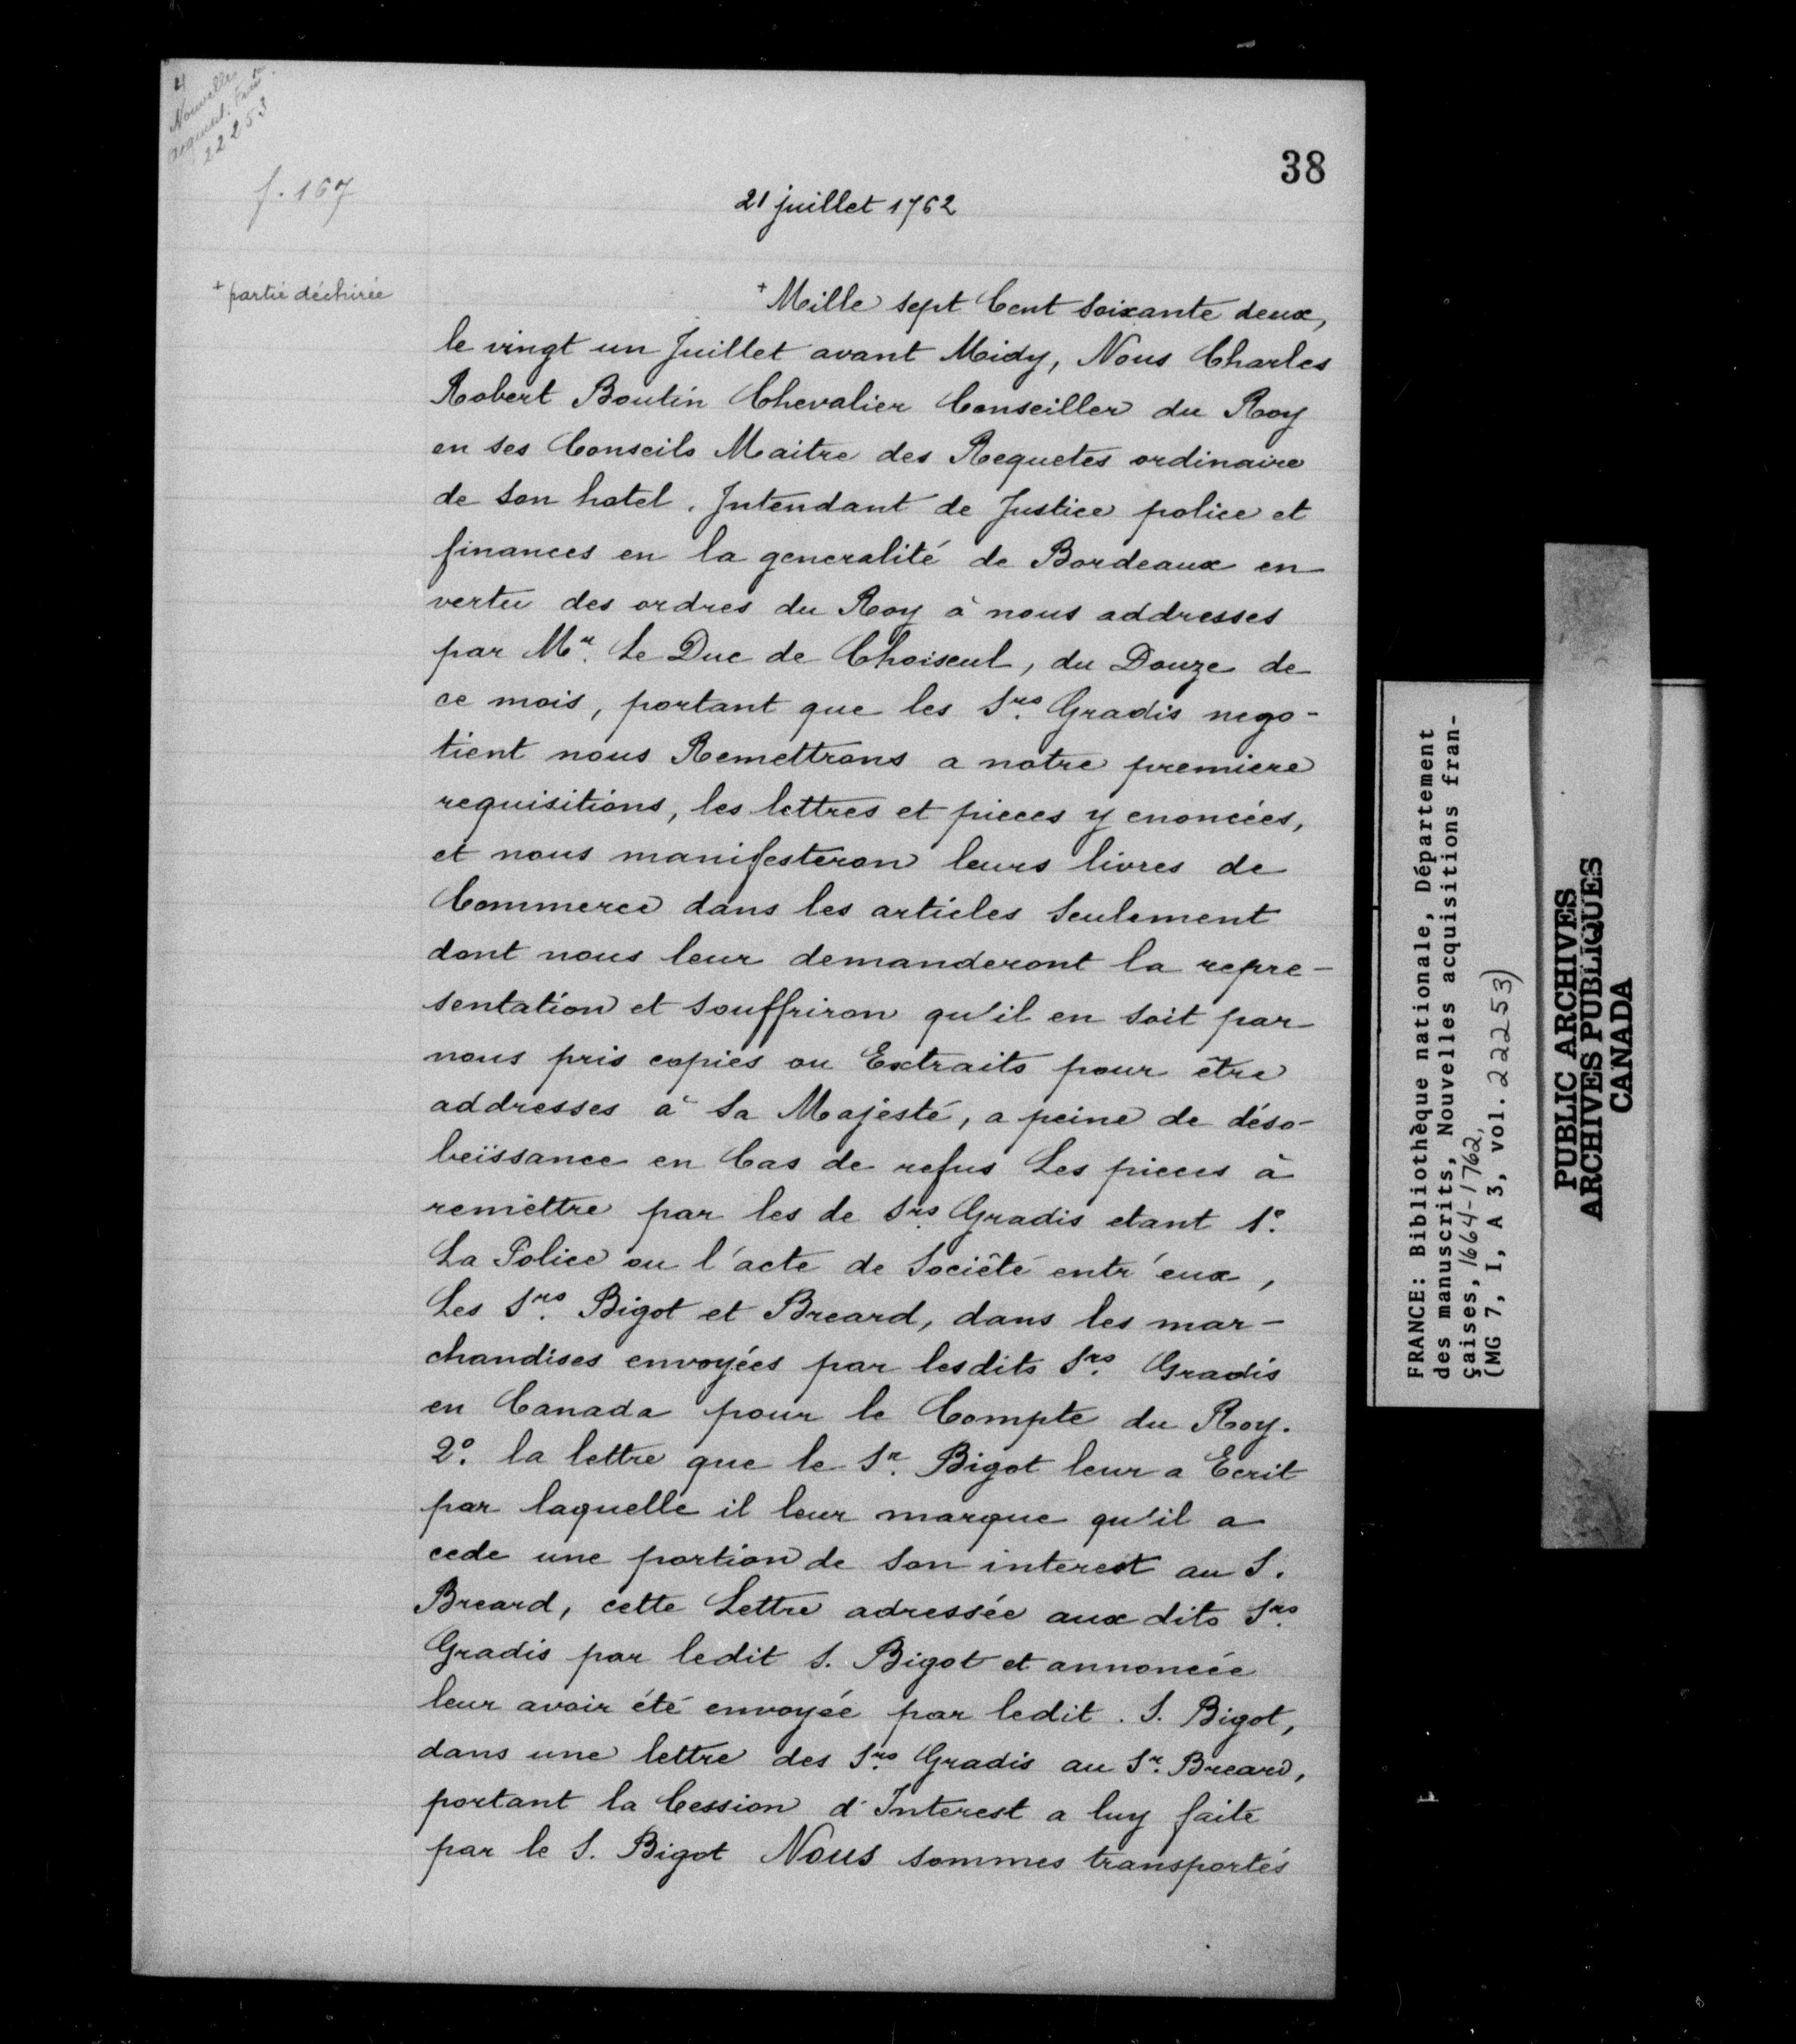 4
Nouvelles
acquisit. Frses
22253
38
f. 167
21 juillet 1762
+ partie déchirée
+ Mille sept Cent soixante deux,
le vingt un Juillet avant Midy, Nous Charles
Robert Boutin Chevalier Conseiller du Roy
en ses Conseils Maitre des Requetes ordinaire
de son hotel. Intendant de Justice police et
finances en la generalité de Bordeaux en
vertu des ordres du Roy à nous addresses
par Mr. Le Duc de Choiseul, du Douze de
ce mois, portant que les Srs. Gradis nego-
tient nous Remettrons a notre premiere
requisitions, les lettres et pieces y enoncées,
et nous manifesteron leurs livres de
Commerce dans les articles seulement
dont nous leur demanderont la repre-
sentation et souffriron qu'il en soit par
nous pris copies ou Extraits pour être
addresses à Sa Majesté, a peine de déso-
beïssance en Cas de refus Les pieces à
remettre par les de Srs. Gradis etant 1º.
La Police ou l'acte de Société entr'eux,
Les Srs. Bigot et Breard, dans les mar-
chandises envoyées par lesdits Srs. Gradis
en Canada pour le Compte du Roy.
2º. la lettre que le Sr. Bigot leur a Ecrit
par laquelle il leur marque qu'il a
cede une portion de son interest au S.
Breard, cette Lettre adressée aux dits Srs.
Gradis par ledit S. Bigot et annoncée
leur avoir été envoyée par ledit. S. Bigot,
dans une lettre des Srs. Gradis au Sr. Breard,
portant la Cession d'Interest a luy faite
par le S. Bigot Nous sommes transportés
FRANCE: Bibliothèque nationale, Département
des manuscrits, Nouvelles acquisitions fran-
çaises, 1664-1762,
(MG 7, I, A 3, vol. 22253)
PUBLIC ARCHIVES
ARCHIVES PUBLIQUES
CANADA